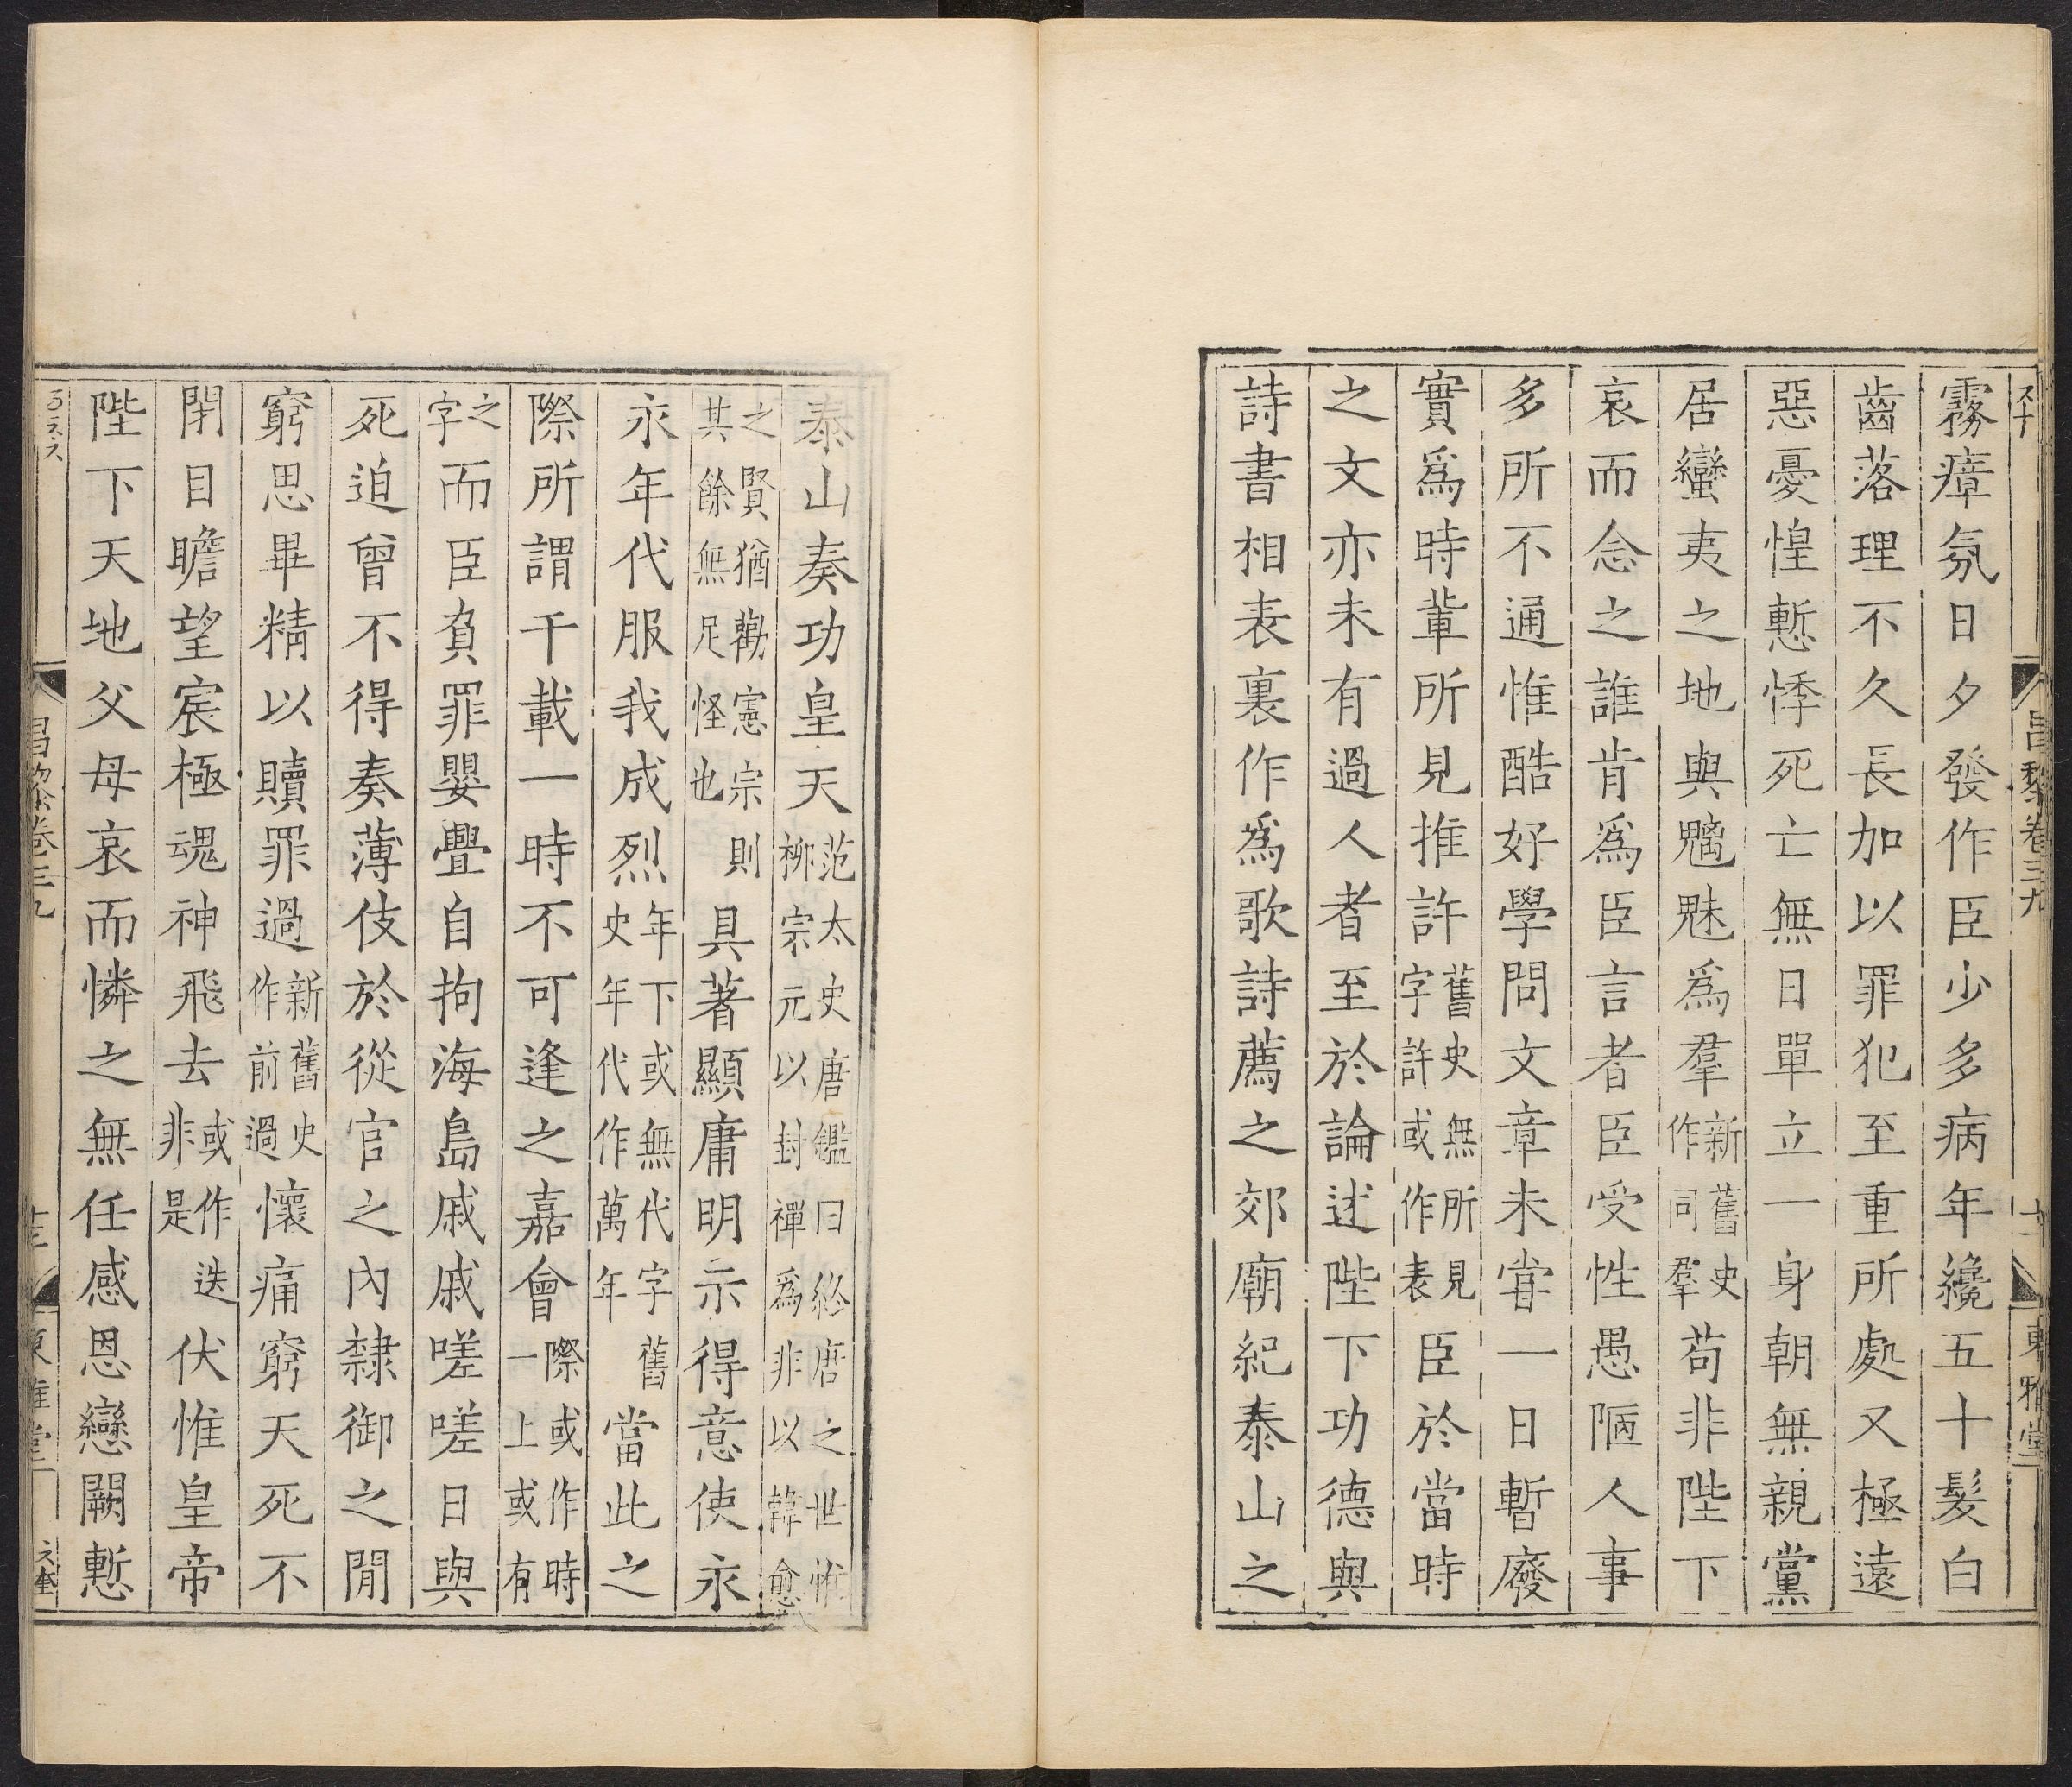 霧瘴氛日夕發作臣少多病年纔五十髮白
齒落理不久長加以罪犯至重所處又極遠
惡憂惶慙悸死亡無日單立一身朝無親黨
居蠻夷之地與魑魅爲羣新舊史作同羣苟非陛下
哀而念之誰肯爲臣言者臣受性愚陋人事
多所不通惟酷好學問文章未甞一日暫廢
實爲時輩所見推許舊史無所見字許或作表臣於當時
之文亦未有過人者至於論述陛下功德與
詩書相表裏作爲歌詩薦之郊廟紀泰山之
昌黎卷三九
東雅堂
泰山奏功皇天范太史唐鑑曰終唐之世惟柳宗元以封禪爲非以韓愈
之賢猶勸憲宗則其餘無足怪也具著顯庸明示得意使永
永年代服我成烈年下或無代字舊史年年代作萬年當此之
際所謂千載一時不可逢之嘉會際或作時一上或有
之字而臣負罪嬰舋自拘海島戚戚嗟嗟日與
死迫曾不得奏薄伎於從官之內隸御之閒
窮思畢精以贖罪過新舊史作前過懷痛窮天死不
閉目瞻望宸極魂神飛去或作迭非是伏惟皇帝
陛下天地父母哀而憐之無任感恩戀闕慙
昌黎卷三九
東雅堂